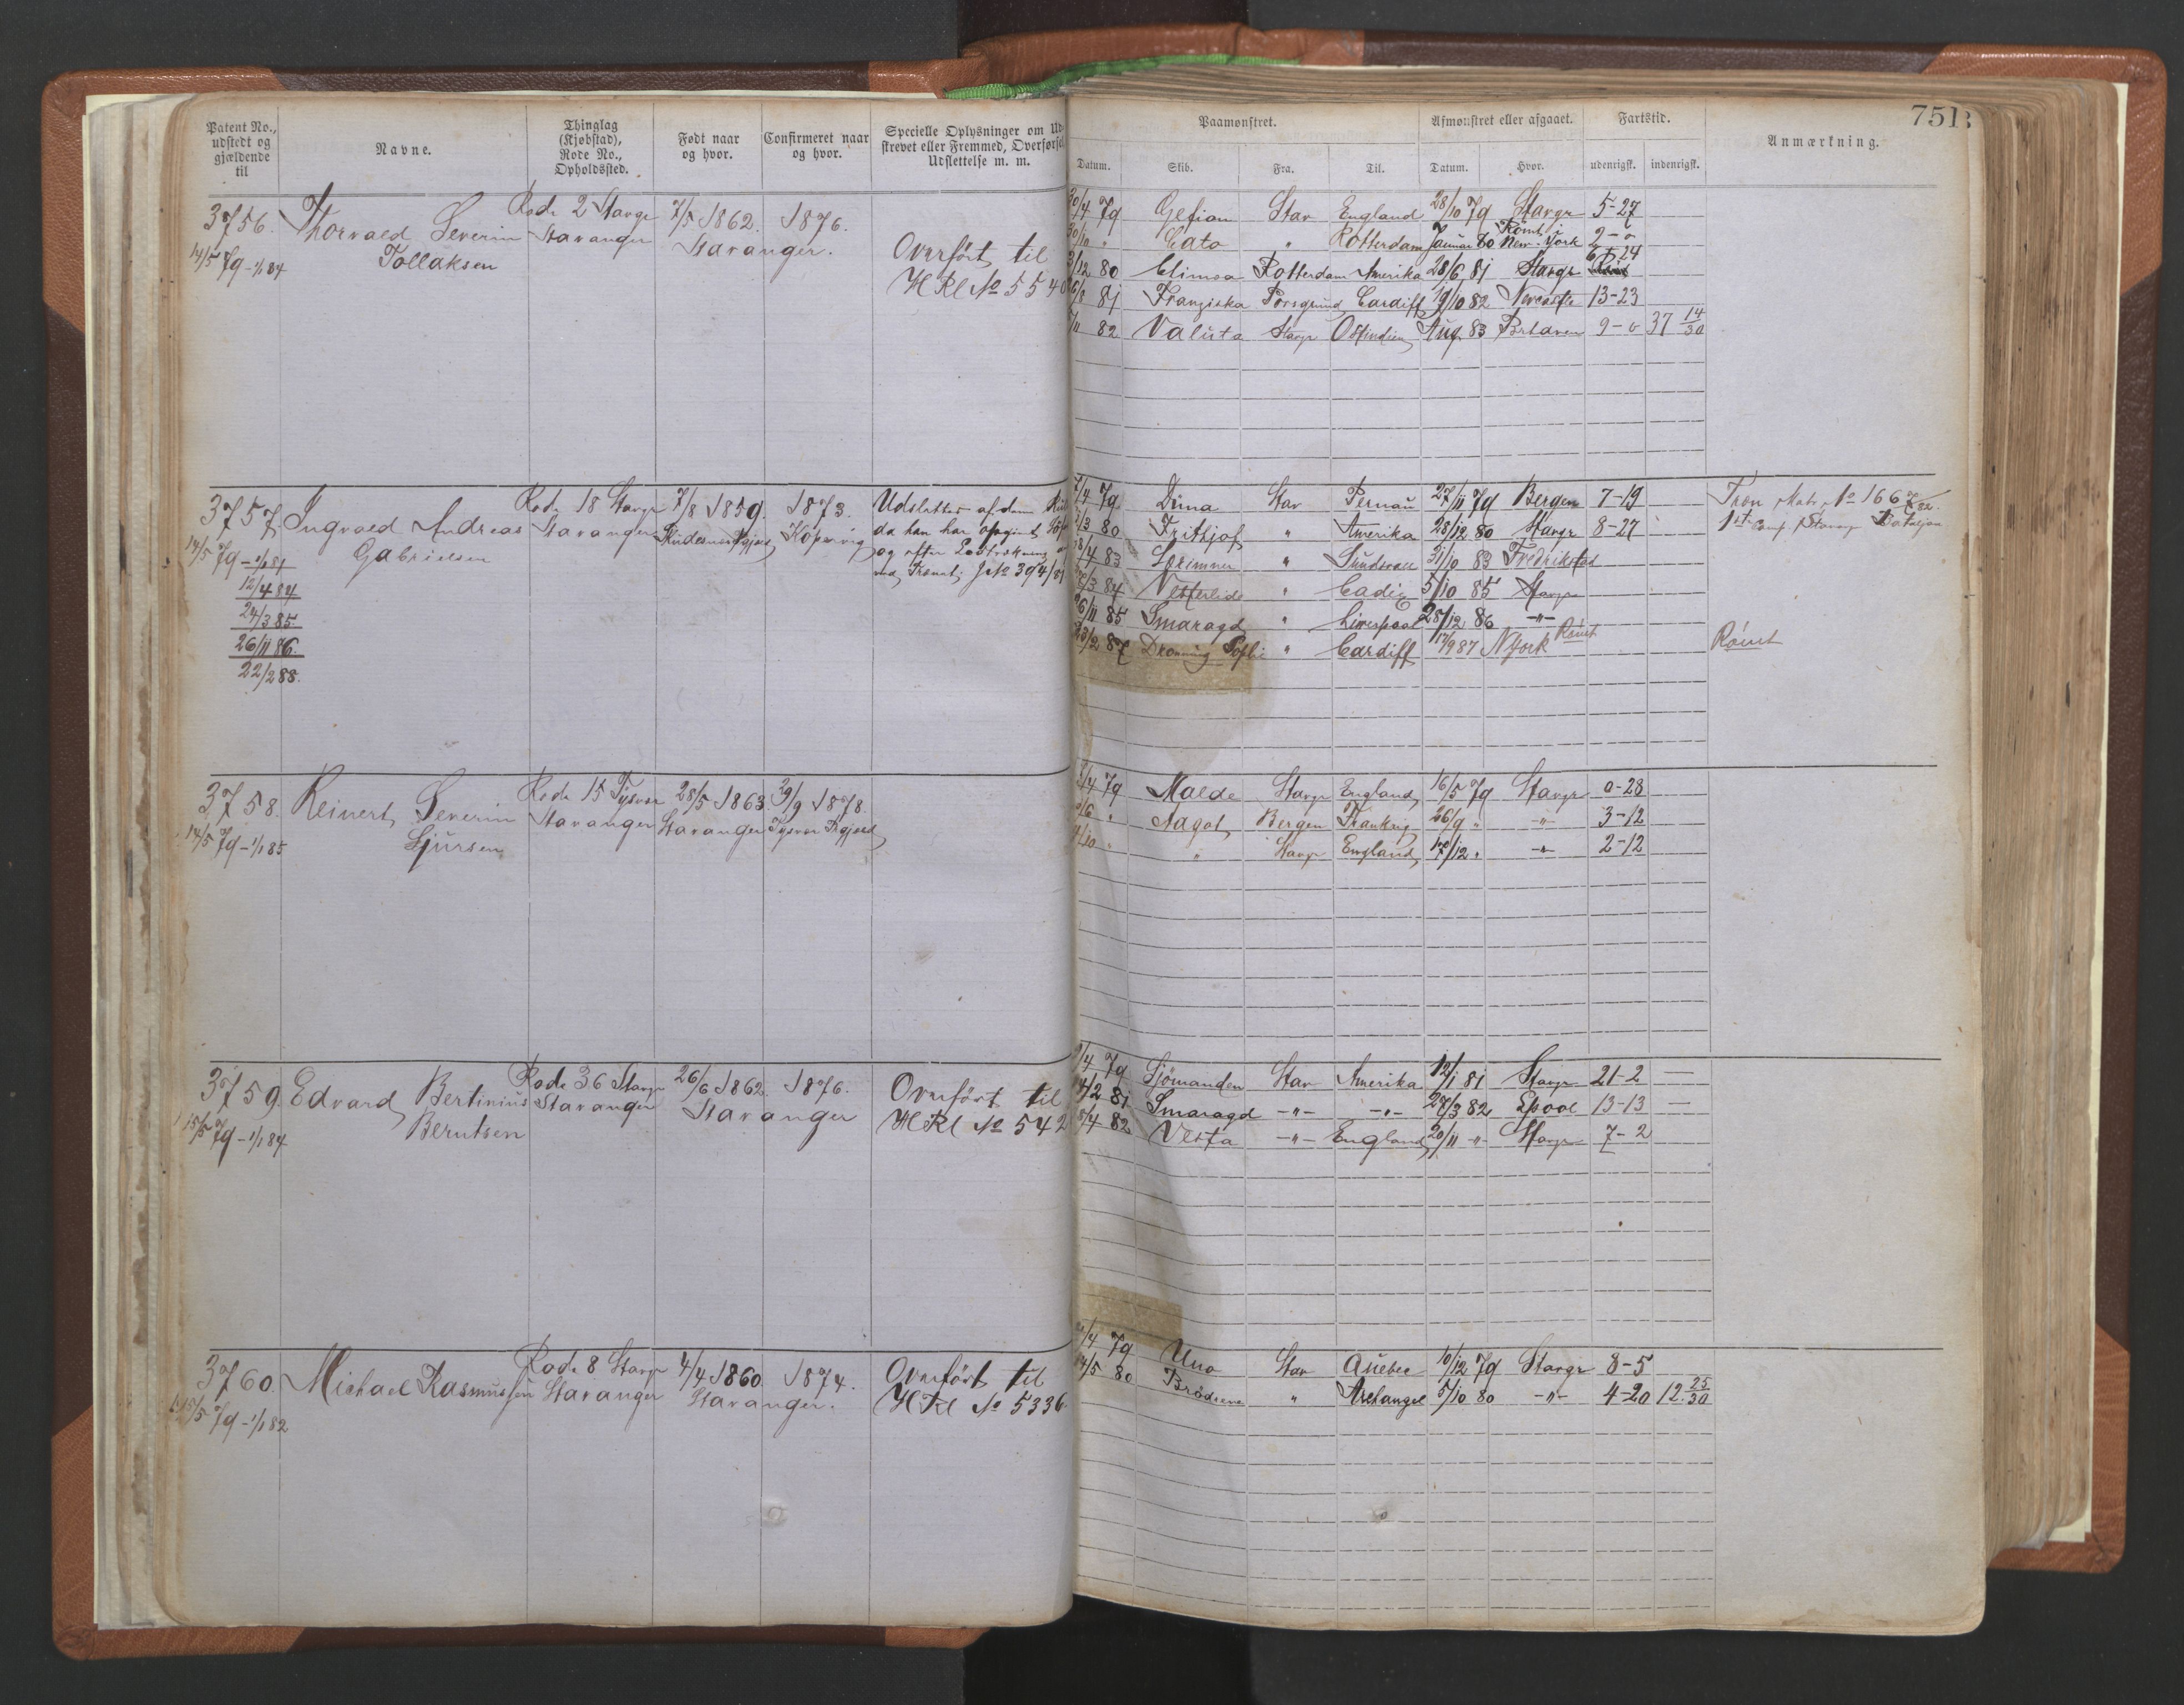 Patent No., udstedt og gjældende til
Navne.
Thinglag (Kjøbstad), Rode No., Opholdssted.
Født naar og hvor.
Confirmeret naar og hvor.
Specielle Oplysninger om Ud-
skrevet eller Fremmed, Overførsel
Udslettelse m. m.
3756.
14/5 79 - 1/1 84
Thorvald Severin
Tollaksen
Rode 2 Stavgr
Stavanger
7/5 1862.
Stavanger.
1876.
Overført til
HRl No 5540
3757.
14/5 79 - 1/1 81
12/4 84
24/3 85.
26/11 86.
22/2 88.
Ingvald Andreas
Gabrielsen
Rode 18 Stavgr
Stavanger
7/8 1859.
1873.
Kopervig
Udslettes af denne
da han har opgivet
og efter
JNo 394/81
3758.
14/5 79 - 1/1 85
Reinert Severin
Sjursen
Rode 15 Tysvær
Stavanger
28/5 1863.
Stavanger
29/9 1878.
Tysvær Prgjæld
3759.
15/5 79 - 1/1 84
Edvard Bertinius
Berntsen
Rode 36 Stavgr
Stavanger
26/6 1862.
1876.
Stavanger
Overført til
HRl No 542
3760.
15/5 79 - 1/1 82
Michael Rasmussen
Rode 8 Stavgr
Stavanger
4/4 1860.
Stavanger.
1874.
Overført til
HRl No 5336.
751
Paamønstret.
Afmønstret eller afgaaet.
Fartstid.
Anmærkning.
Datum.
Skib.
Fra.
Til.
Datum.
Hvor.
udenrigsk.
indenrigsk.
30/4 79 Gefion Stav England 28/10 79 Stavgr 5-27
30/10 " Cato " Rotterdam Januar 80 New-York Rømt 2-0
3/12 80 Rotterdam Amerika 28/6 81 Stavgr 6-24
81 Franziska Porsgrund Cardiff 19/10 82 13-23
/11 82 Valuta Stavgr Ostindien Aug. 83 9-0 37 14/30
/4 79 Duna Stav Pernau 27/11 79 Bergen 7-19
/3 80 Fritjof " Amerika 28/12 80 Stavgr 8-27
Fron
No 1667/82.
1st Comp. Stavgr Bataljon
/4 83 " 31/10 83 Fredrikstad
/3 84 " Cadiz 5/10 85 Stavgr
26/11 85 Smaragd " Liverpool 28/12 86 -"-
23/2 87 Dronning Sophie " Cardiff 17/9 87 NYork Rømt
Rømt
/4 79 Malde Stavgr England 16/5 79 Stavgr 0-28
/6 " Aagot Bergen Frankrig 26/9 " -"- 3-12
/10 " " Stavgr England 17/12 " -"- 2-12
/4 79 Sjömanden Stav Amerika 12/1 81 Stavgr 21-2 —
14/2 81 Smaragd -"- -"- 27/3 82 Lpool 13-13 —
/4 82 Vesta -"- England 20/11 -"- Stavgr 7-2
/4 79 Uno Stav Quebec 10/12 79 Stavgr 8-5
/5 80 Brødrene " Archangel 5/10 80 -"- 4-20 12. 25/30